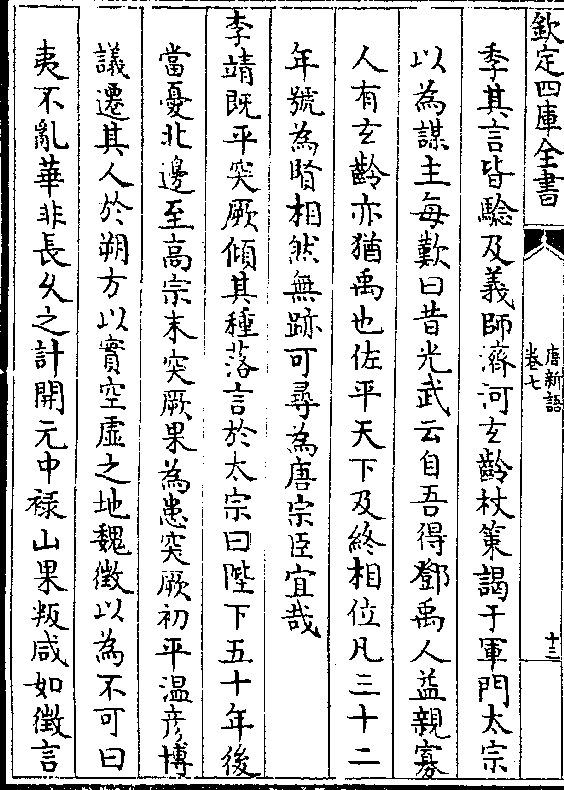 欽定四庫全書
唐新語
卷七
十三
季其言皆驗及義師濟河玄齡杖策謁于軍門太宗
以為謀主每歎曰昔光武云自吾得鄧禹人益親寡
人有玄齡亦猶禹也佐平天下及終相位凡三十二
年號為賢相然無跡可尋為唐宗臣宜哉
李靖既平突厥傾其種落言於太宗曰陛下五十年後
當憂北邊至高宗末突厥果為患突厥初平温彦博
議遷其人於朔方以實空虛之地魏徵以為不可曰
夷不亂華非長久之計開元中祿山果叛咸如徵言